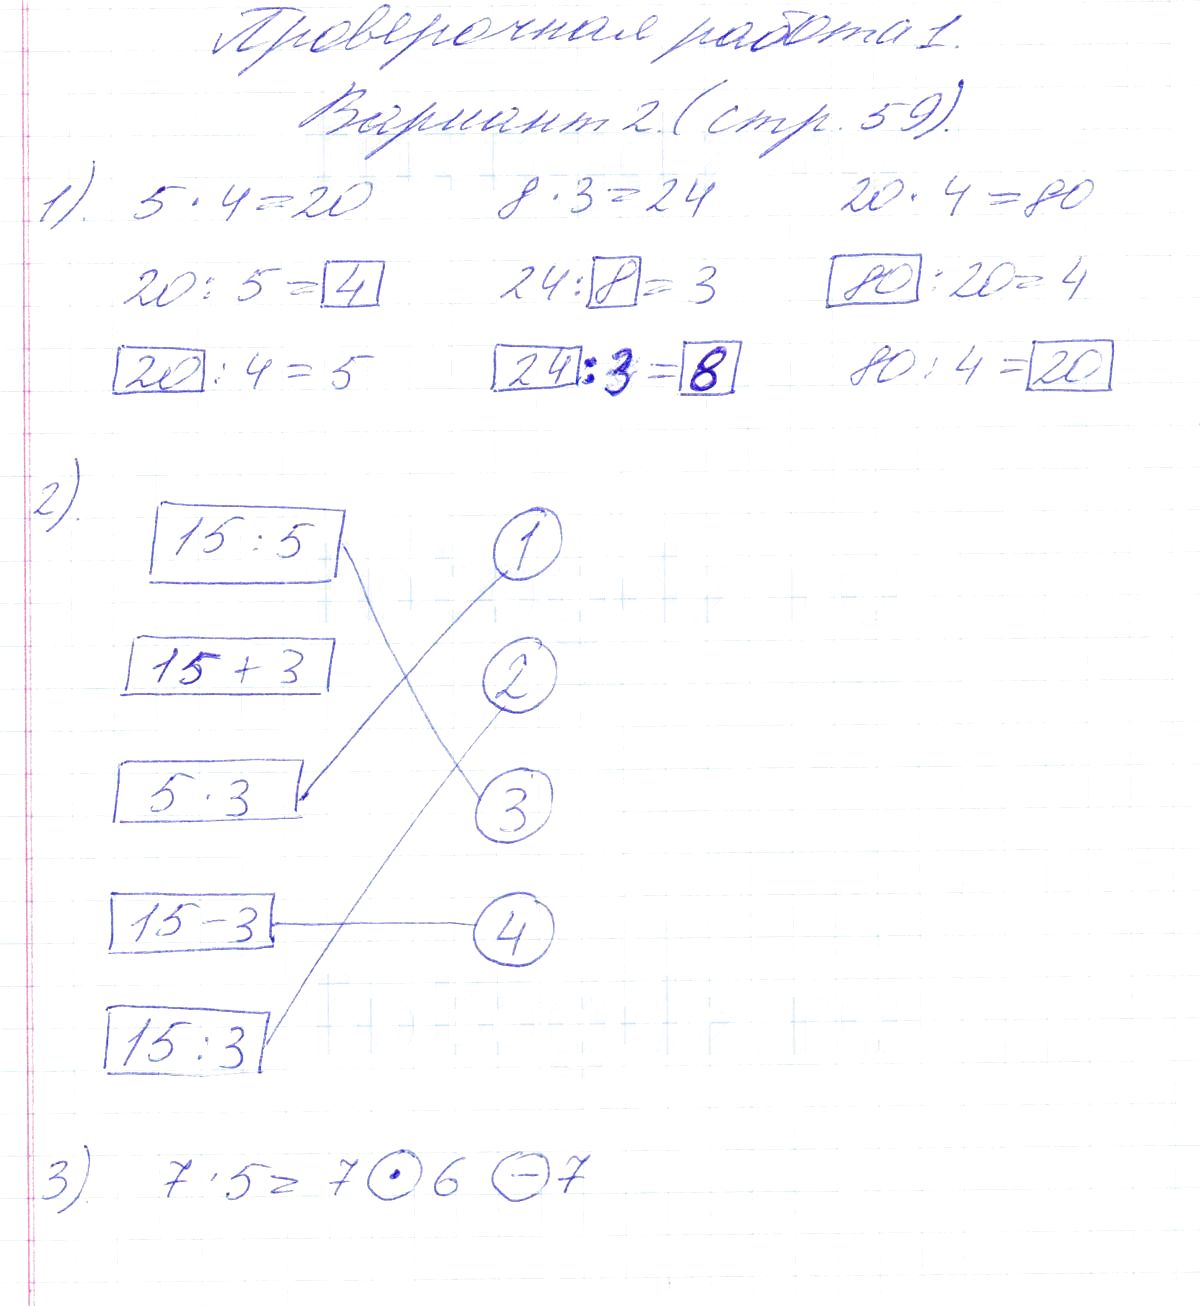 Проверочная работа 1.
Вариант 2. (стр. 59).
1). 5 · 4 = 20 8 · 3 = 24 20 · 4 = 80
20 : 5 = 4 24 : 8 = 3 80 : 20 = 4
20 : 4 = 5 24 : 3 = 8 80 : 4 = 20
2).
15 : 5 1
15 + 3 2
5 · 3 3
15 - 3 4
15 : 3
3). 7 · 5 = 7 · 6 - 7